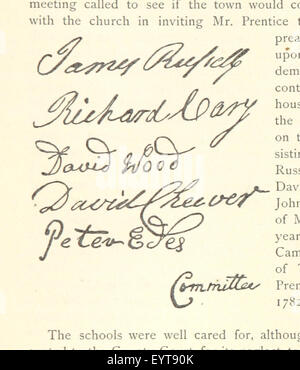 meeting called to see if the town would co
with the church in inviting Mr. Prentice t
prea
upon
dem
cont
hous
the
on t
sistin
Russ
Dav
John
of M
year
Cam
of T
Pren
1782
James Russell
Richard Cary
David Wood
David Cheever
Peter Edes
Committee
The schools were well cared for, althoug
alamy
Image ID: EYT90K
www.alamy.com